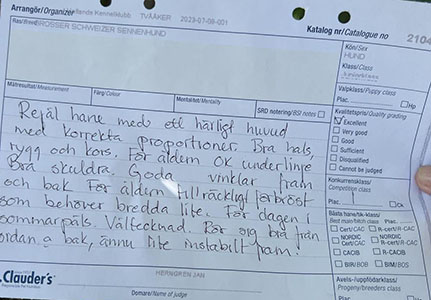 Arrangör/Organizer
Hallands Kennelklubb TVÅÅKER 2023-07-08-001
Katalog nr/Catalogue no 2104
Ras/Breed
GROSSER SCHWEIZER SENNENHUND
Kön/Sex
HUND
Klass/Class
Juniorklass
Valpklass/Puppy class
Plac. Hp
Mätresultat/Measurement
Färg/Colour
Mentalitet/Mentality
SRD notering/BSI notes
Kvalitetspris/Quality grading
Excellent
Very good
Good
Sufficient
Disqualified
Cannot be judged
Konkurrensklass/
Competition class
Plac. Ck
Bästa hane/tik-klass/
Best male/bitch class Plac.
Cert/CAC R-cert/R-CAC
NORDIC CAC NORDIC R-CAC
CACIB R-CACIB
BIR/BOB BIM/BOS
Avels-/uppfödarklass/
Progeny/breeders class
Rejäl hane med ett härligt huvud
med korrekta proportioner. Bra hals,
rygg och kors. För åldern OK underlinje
Bra skuldra. Goda vinklar fram
och bak För åldern tillräckligt förbröst
som behöver bredda lite. För dagen i
sommarpäls Vältecknad. Rör sig bra från
sidan o bak, ännu lite instabilt fram!
Clauder's
HERNGREN JAN
Domare/Name of judge